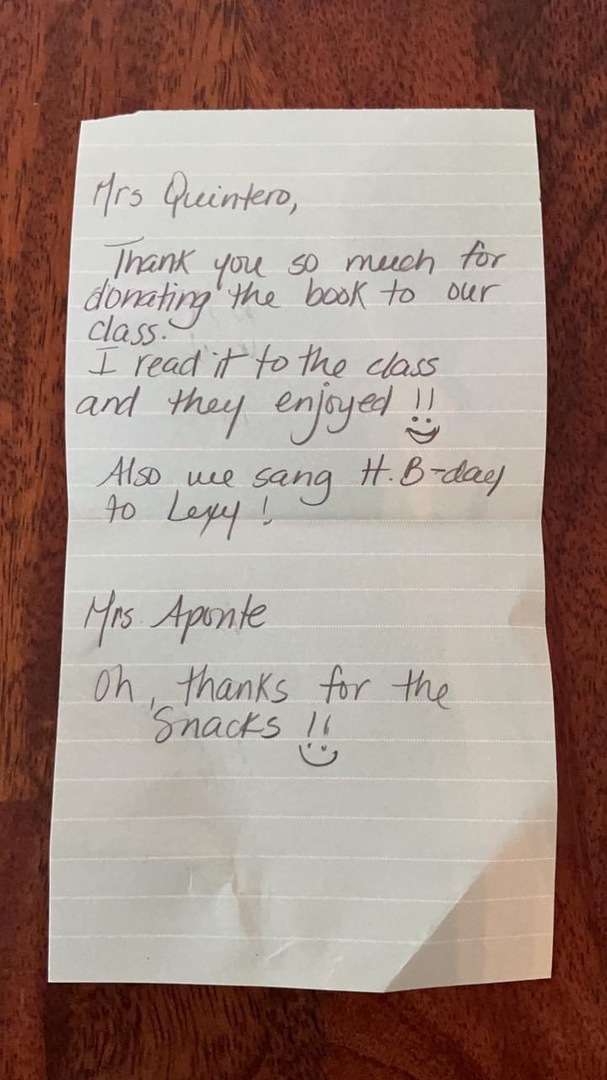 Mrs Quintero,
Thank you so much for
donating the book to our
class.
I read it to the class
and they enjoyed !!
Also we sang H. B-day
to Lexy !
Mrs. Aponte
Oh, thanks for the
Snacks !!